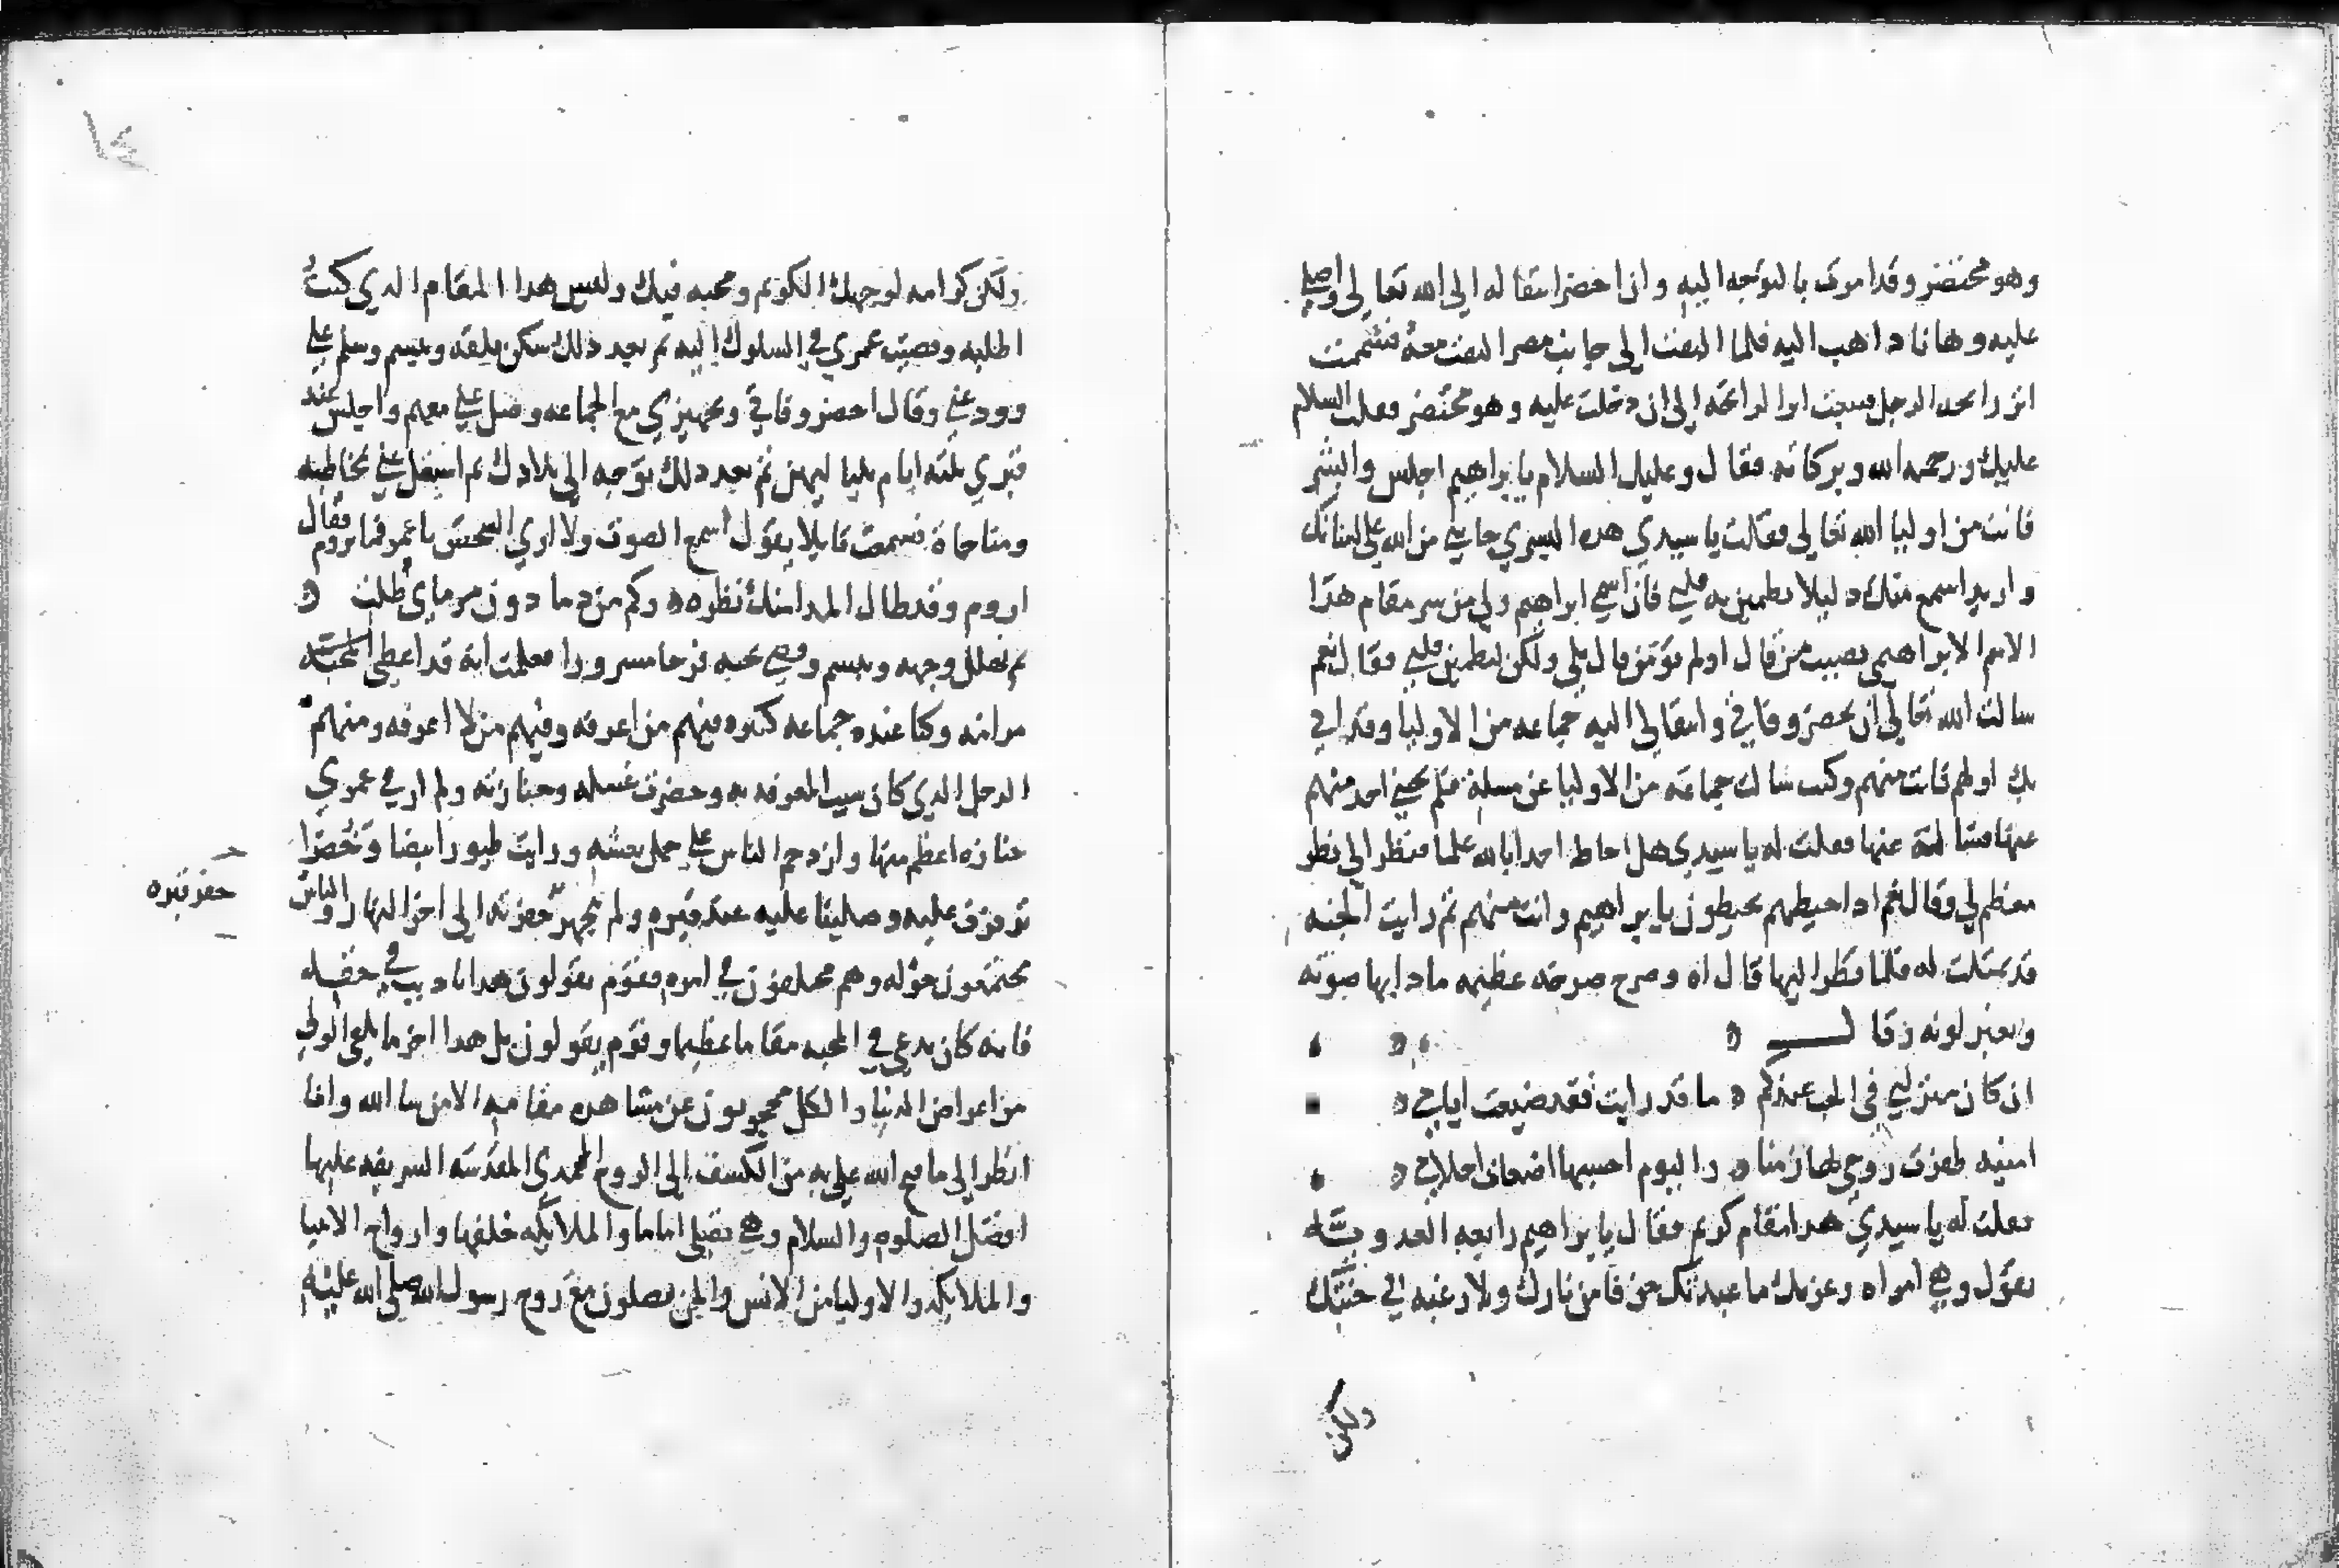 وهو محتضر وقد امرك بالتوجه اليه وان احضر انتقاله الى الله تعالى واصلي
عليه وها انا ذاهب اليه فلما التفت الى جانب مصر التفت معه فشممت
اثر رائحة الرجل فتبعت اثر الرائحة الى ان دخلت عليه وهو محتضر فقلت السلام
عليك ورحمة الله وبركاته فقال وعليك السلام يا ابراهيم اجلس وابشر
فانت من اوليا الله تعالى فقلت يا سيدي هذه البشرى جاتني من الله على لسانك
واريد اسمع منك دليلا يطمين به قلبي فان اسمي ابراهيم ولي من سر مقام هذا
الاسم الابراهيمي نصيب من قال اولم تومن قال بلى ولكن ليطمين قلبي فقال نعم
سالت الله تعالى ان يحضر وفاتي وانتقالي اليه جماعه من الاوليا وقد اتى
بك اولهم فانت منهم وكنت سالت جماعه من الاوليا عن مسلة فلم يجبني احد منهم
عنها فسالته عنها فقلت له يا سيدي هل احاط احد بالله علما فنظر الي نظر
معظم لي وقال نعم اذا حيطهم يحيطون يا ابراهيم وانت منهم ثم رايت الجنه
قد تمثلت له فلما نظر اليها قال اه وصرخ صرخه عظيمه مادا بها صوته
وتغير لونه وقال
ان كان منزلتي في الحب عندكم ما قد رايت فقد ضيعت ايامي
امنيه ظفرت روحي بها زمنا واليوم احسبها اضغاث احلام
فقلت له يا سيدي هذا مقام كريم فقال يا ابراهيم رابعه العدويه
تقول وهي امراه وعزتك ما عبدتك خوفا من نارك ولا رغبه في جنتك
ولكن كرامه لوجهك الكريم ومحبه فيك وليس هذا المقام الذي كنت
اطلبه وقضيت عمري في السلوك اليه ثم بعد ذلك سكن قلقه وتبسم وسلم علي
وودعني وقال احضر وفاتي وتجهيزي مع الجماعه وصل علي معهم واجلس عند
قبري ثلثه ايام بلياليهن ثم بعد ذلك توجه الى بلادك ثم اشتغل عني بمخاطبه
ومناجاة فسمعت قايلا يقول اسمع الصوت ولا ارى الشخص يا عمر فما تروم فقال
اروم وقد طال المدا منك نظره وكم من دما دون مرماي طلت
ثم تهلل وجهه وتبسم وقضى نحبه فرحا مسرورا فعلمت انه قد اعطي
مرامه وكنا عنده جماعه كثيره فيهم من اعرفه وفيهم من لا اعرفه ومنهم
الرجل الذي كان سبب المعرفه به وحضرت غسله وجنازته ولم ار في عمري
جنازه اعظم منها وازدحم الناس على حمل نعشه ورايت طيورا بيضا وخضرا
ترفرف عليه وصلينا عليه عند قبره ولم يتجهز حفرته الى اخر النهار والناس
حفر قبره
مجتمعون حوله وهم مختلفون في امره فقوم يقولون هذا تاديب في حقه
فانه كان يدعي في المحبه مقاما عظيما وقوم يقولون بل هذا اخر ما يلقى الولي
من اعراض الدنيا والكل محجوبون عن مشاهده مقامه الا من شا الله وانا
انظر الى ما فتح الله علي به من الكشف الى الروح المحمدي المقدسه الشريفه عليها
افضل الصلوه والسلام وهي تصلي اماما والملايكه خلفها وارواح الانبيا
والملايكه والاوليا من الانس والجن يصلون مع روح رسول الله صلى الله عليه